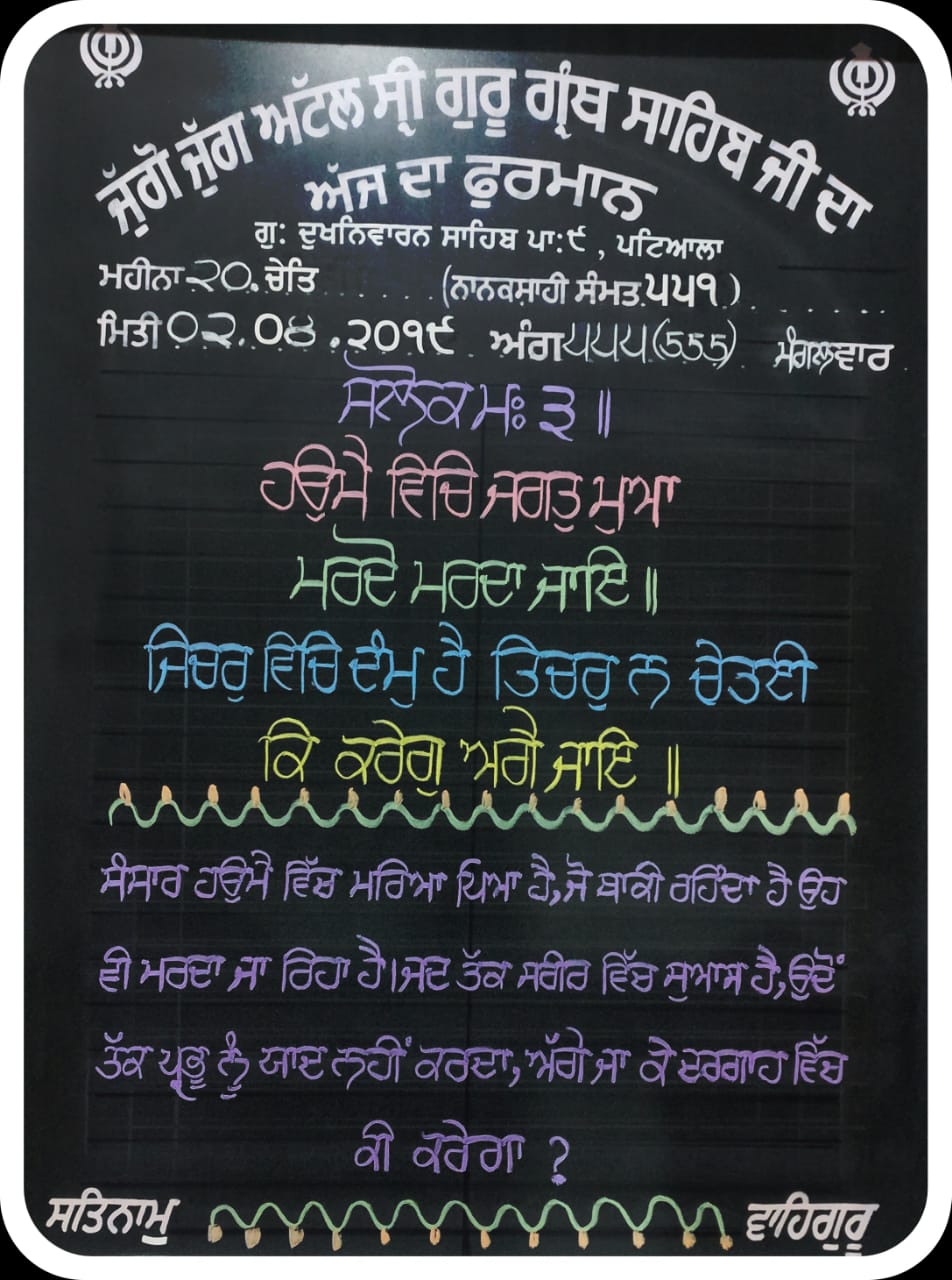 ਜੁੱਗੋ ਜੁੱਗ ਅਟੱਲ ਸ੍ਰੀ ਗੁਰੂ ਗ੍ਰੰਥ ਸਾਹਿਬ ਜੀ ਦਾ
ਅੱਜ ਦਾ ਫੁਰਮਾਨ
ਗੁ: ਦੁਖਨਿਵਾਰਨ ਸਾਹਿਬ ਪਾ:੯ , ਪਟਿਆਲਾ
ਮਹੀਨਾ ੨੦. ਚੇਤਿ (ਨਾਨਕਸ਼ਾਹੀ ਸੰਮਤ ੫੫੧)
ਮਿਤੀ ੦੨.੦੪.੨੦੧੯ ਅੰਗ ੫੫੫(555) ਮੰਗਲਵਾਰ
ਸਲੋਕ ਮਃ ੩ ॥
ਹਉਮੈ ਵਿਚਿ ਜਗਤੁ ਮੁਆ
ਮਰਦੋ ਮਰਦਾ ਜਾਇ ॥
ਜਿਚਰੁ ਵਿਚਿ ਦੰਮੁ ਹੈ ਤਿਚਰੁ ਨ ਚੇਤਈ
ਕਿ ਕਰੇਗੁ ਅਗੈ ਜਾਇ ॥
ਸੰਸਾਰ ਹਉਮੈ ਵਿੱਚ ਮਰਿਆ ਪਿਆ ਹੈ,ਜੋ ਬਾਕੀ ਰਹਿੰਦਾ ਹੈ ਉਹ
ਵੀ ਮਰਦਾ ਜਾ ਰਿਹਾ ਹੈ।ਜਦ ਤੱਕ ਸਰੀਰ ਵਿੱਚ ਸੁਆਸ ਹੈ,ਉਦੋਂ
ਤੱਕ ਪ੍ਰਭੂ ਨੂੰ ਯਾਦ ਨਹੀਂ ਕਰਦਾ, ਅੱਗੇ ਜਾ ਕੇ ਦਰਗਾਹ ਵਿੱਚ
ਕੀ ਕਰੇਗਾ ?
ਸਤਿਨਾਮੁ ਵਾਹਿਗੁਰੂ